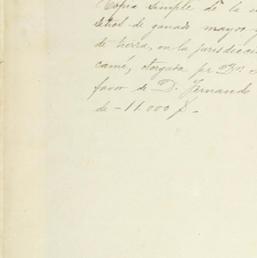 Copia simple de la
sitios de ganado mayor
de tierra, en la jurisdicción
came, otorgada pr
favor de D. Fernando
de - 11.000 p. -